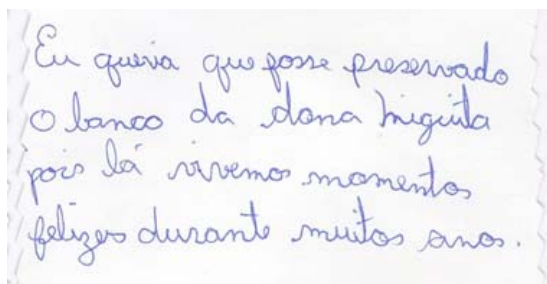 Eu queria que fosse preservado
o banco da dona
pois lá vivemos momentos
felizes durante muitos anos.